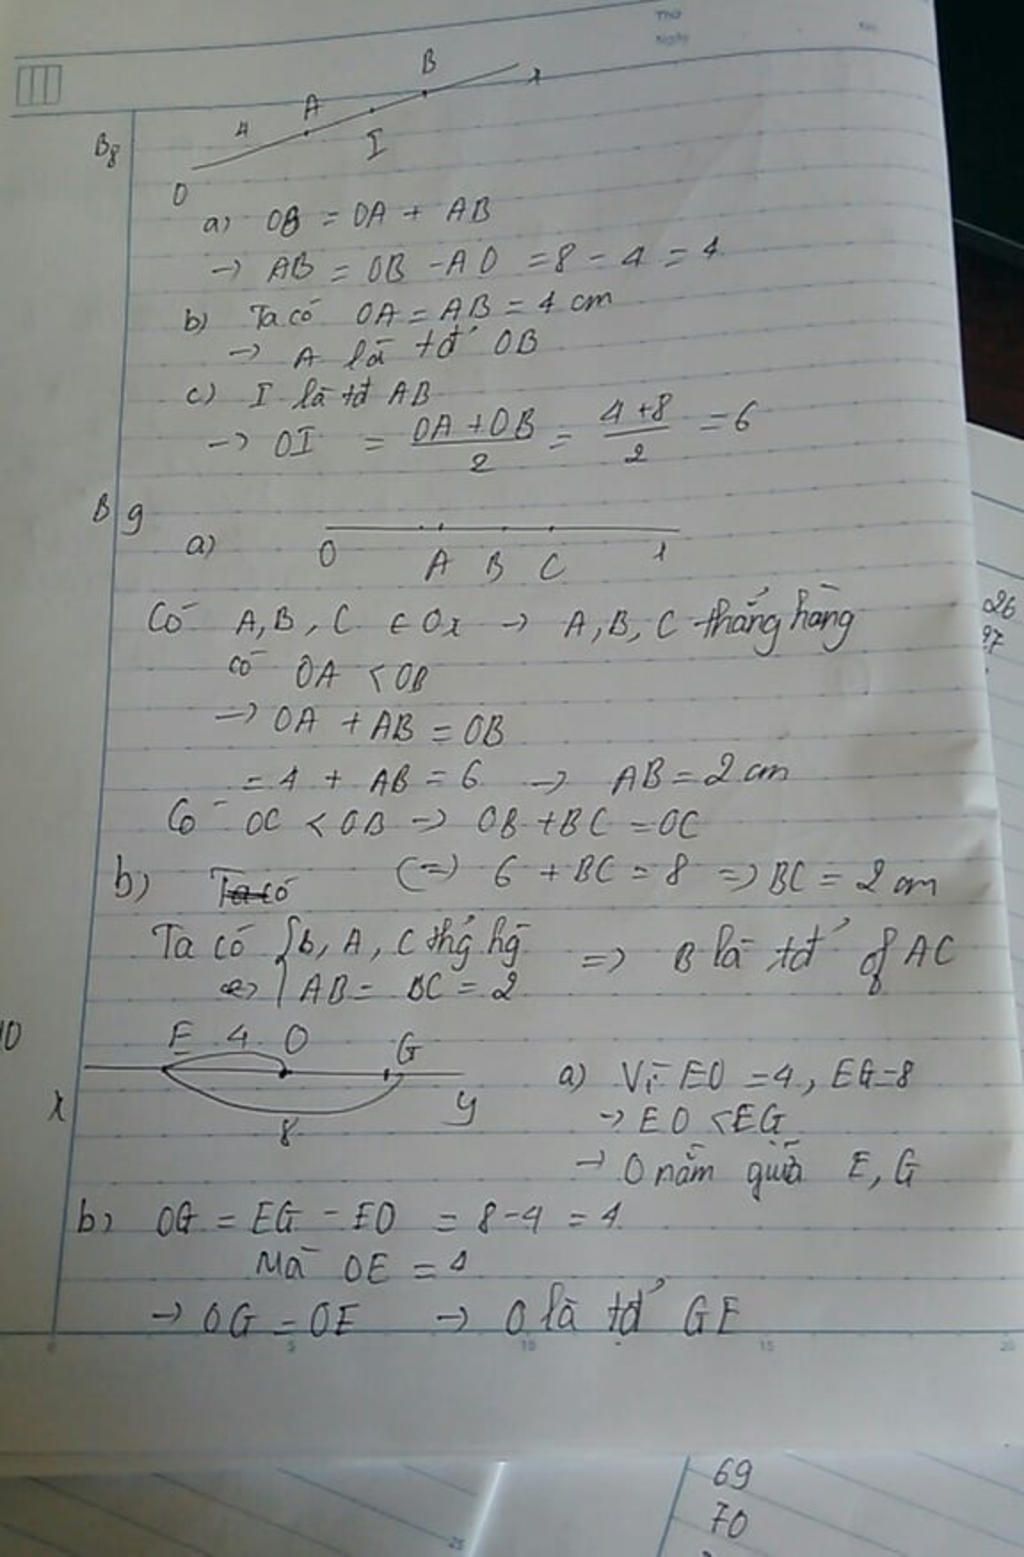 Thứ
Ngày
No.
B8
O 4 A I B x
a) OB = OA + AB
→ AB = OB - AO = 8 - 4 = 4
b) Ta có OA = AB = 4 cm
→ A là tđ' OB
c) I là tđ AB
→ OI = (OA + OB)/2 = (4 + 8)/2 = 6
B9
a)
O A B C x
Có A, B, C ∈ Ox → A, B, C thẳng hàng
có OA < OB
→ OA + AB = OB
= 4 + AB = 6 → AB = 2 cm
Có OC < OB → OB + BC = OC
(=) 6 + BC = 8 => BC = 2 cm
b) Ta có
Ta có { B, A, C thg hg
AB = BC = 2
=> B là tđ' of AC
10
x E 4 O G y
8
a) Vì EO = 4, EG = 8
→ EO < EG
→ O nằm giữa E, G
b) OG = EG - EO = 8 - 4 = 4
Mà OE = 4
→ OG = OE → O là tđ' GE
5 10 15 20
26
97
69
70
25